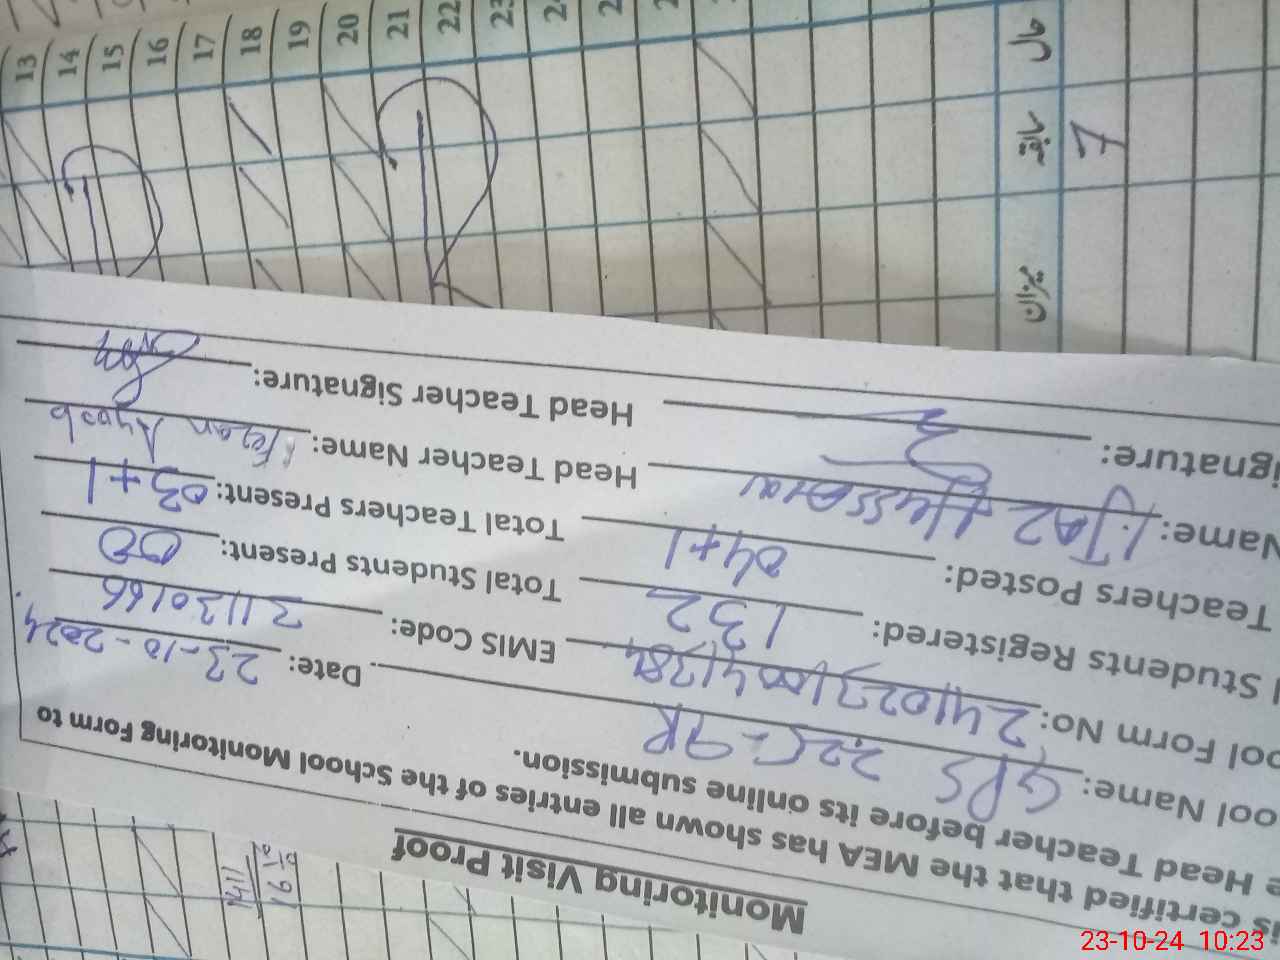 13
14
15
16
17
18
19
20
21
22
23
24
Monitoring Visit Proof
is certified that the MEA has shown all entries of the School Monitoring Form to
e Head Teacher before its online submission.
ool Name: GPS 22C-9R Date: 23-10-2024
ool Form No: EMIS Code: 31130166
l Students Registered: 132 Total Students Present: 00
Teachers Posted: 04+1 Total Teachers Present: 03+1
Name: Ijaz Hussain Head Teacher Name: Ayoob
ignature: Head Teacher Signature:
23-10-24 10:23